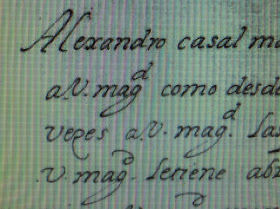 Alexandro casal m
a.V. mag^d como desd
vezes a V. mag^d. Las
V. mag^d. letiene ab